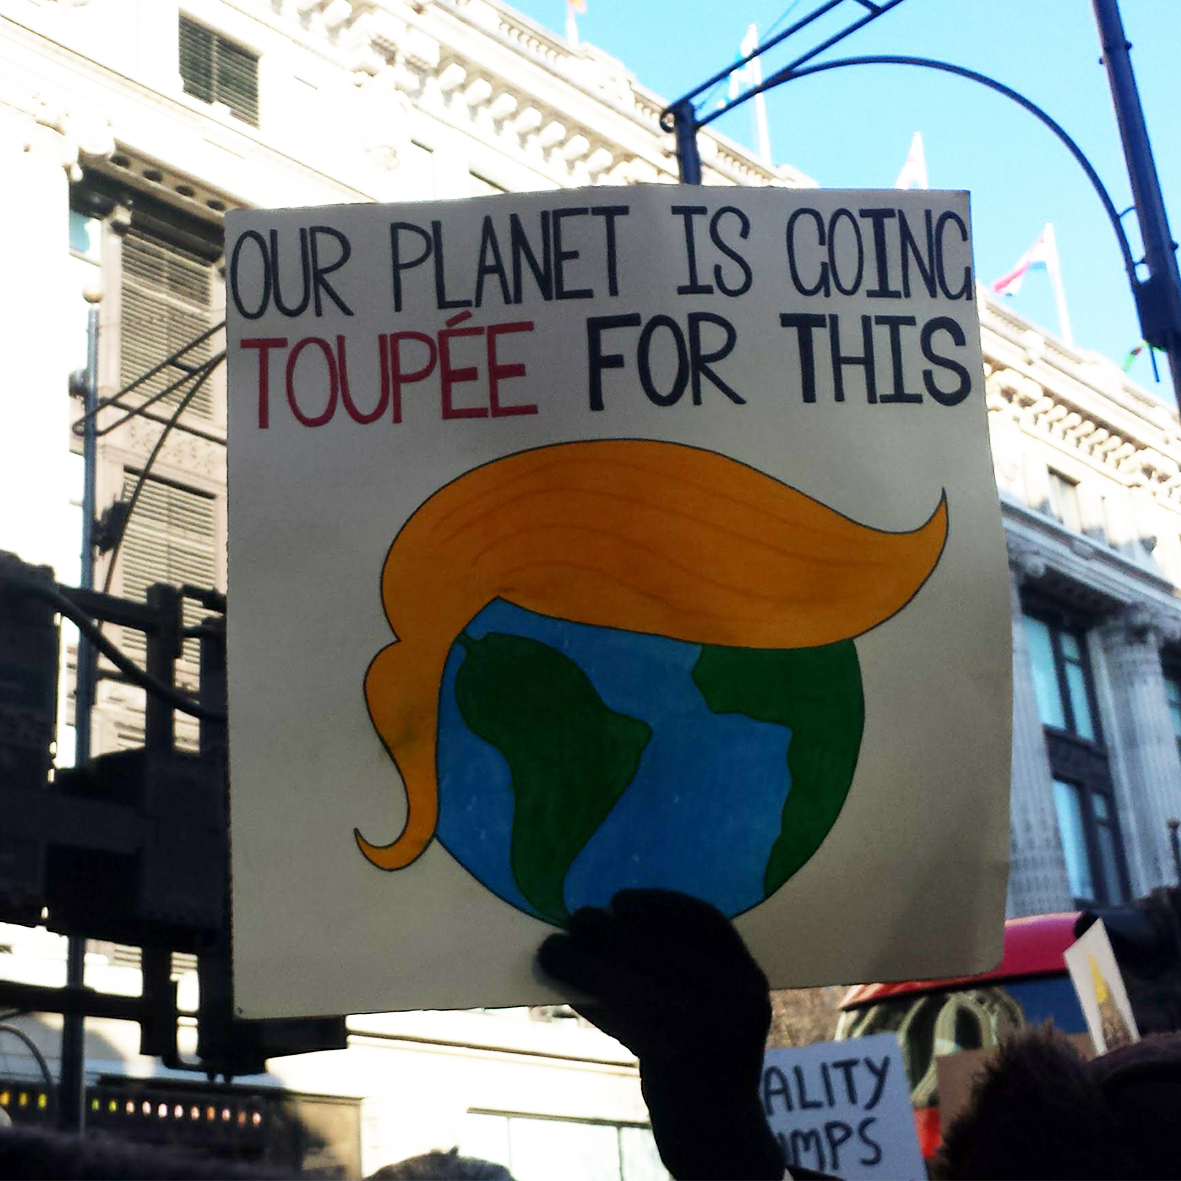 OUR PLANET IS GOING
TOUPÉE FOR THIS
ALITY
UMPS